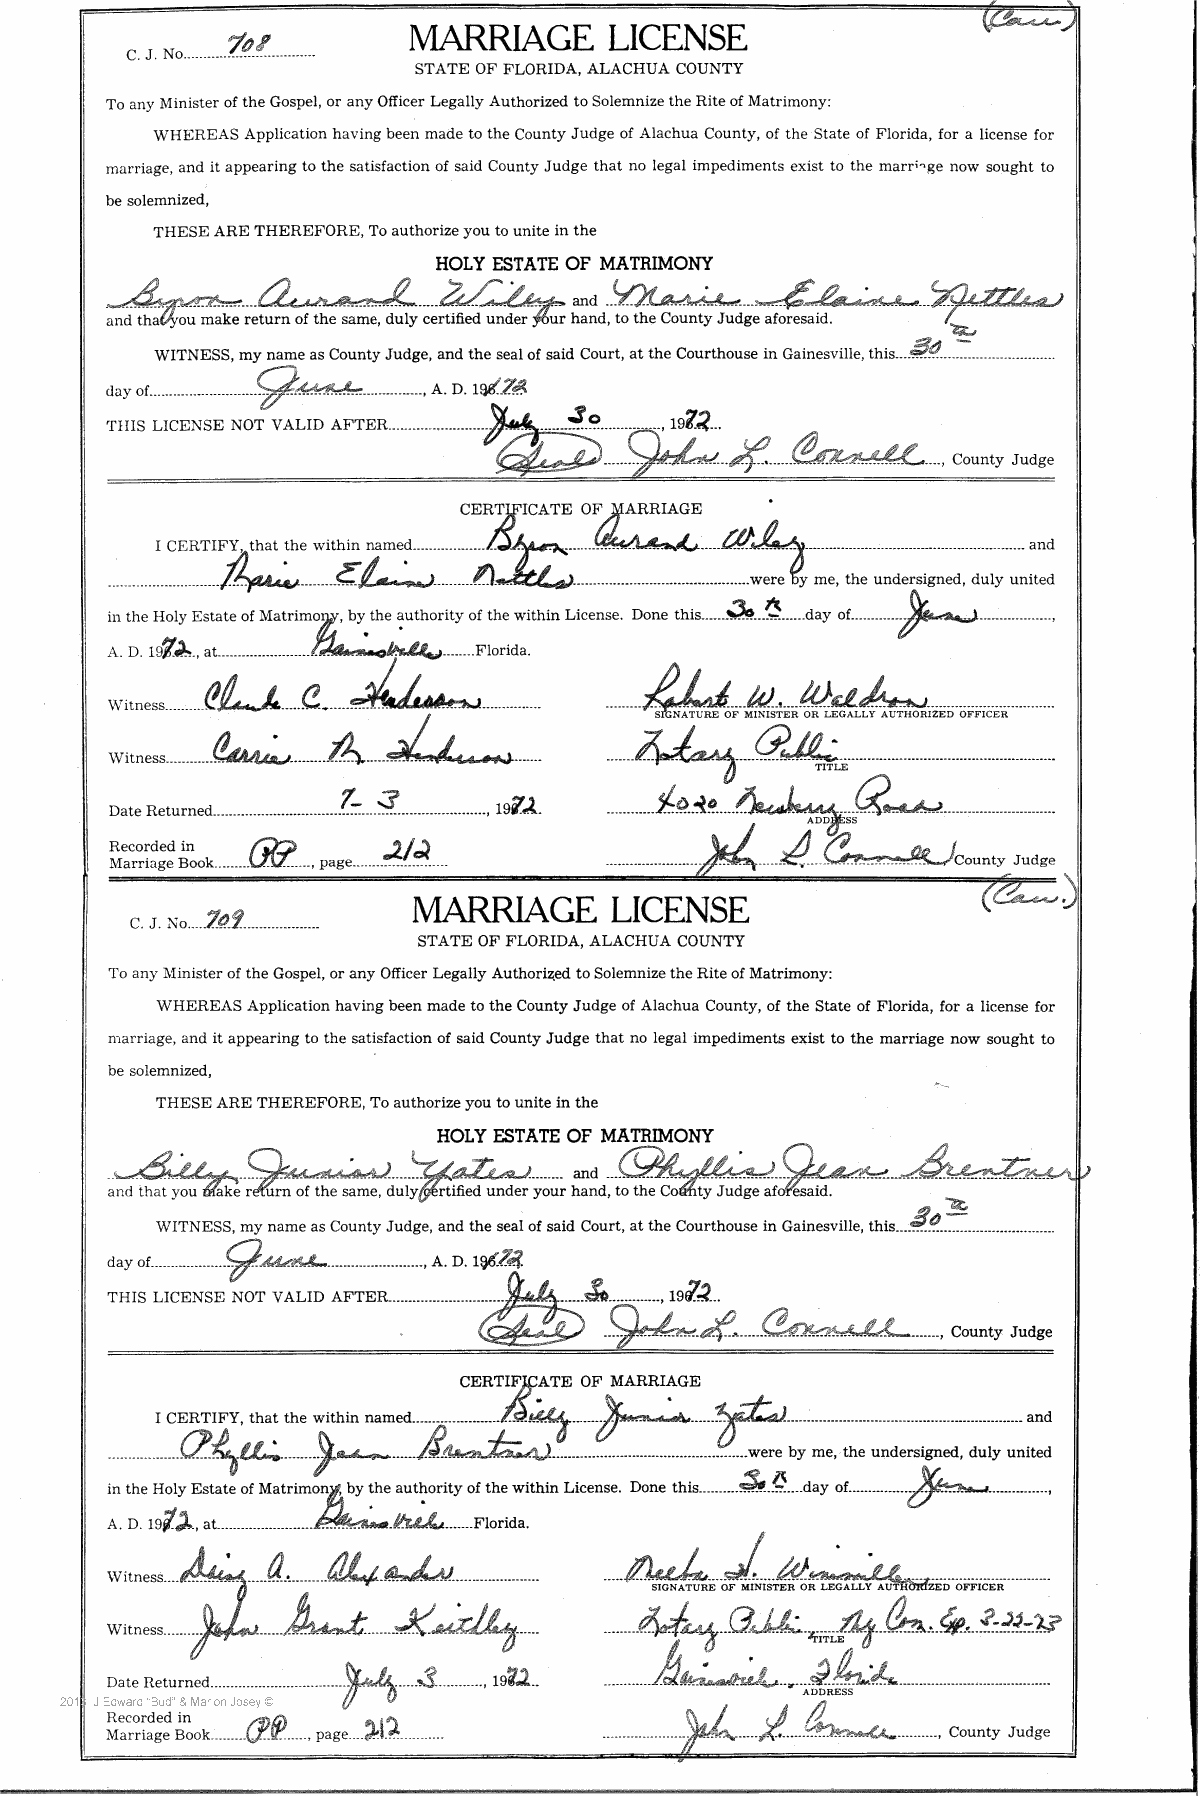 (Cau.)
C. J. No. 708
MARRIAGE LICENSE
STATE OF FLORIDA, ALACHUA COUNTY
To any Minister of the Gospel, or any Officer Legally Authorized to Solemnize the Rite of Matrimony:
WHEREAS Application having been made to the County Judge of Alachua County, of the State of Florida, for a license for
marriage, and it appearing to the satisfaction of said County Judge that no legal impediments exist to the marriage now sought to
be solemnized,
THESE ARE THEREFORE, To authorize you to unite in the
HOLY ESTATE OF MATRIMONY
Byron Aurand Wiley and Marie Elaine Nettles
and that you make return of the same, duly certified under your hand, to the County Judge aforesaid.
WITNESS, my name as County Judge, and the seal of said Court, at the Courthouse in Gainesville, this 30th
day of June, A. D. 1972
THIS LICENSE NOT VALID AFTER July 30, 1972
(Seal) John L. Connell, County Judge
CERTIFICATE OF MARRIAGE
I CERTIFY, that the within named Byron Aurand Wiley and
Marie Elaine Nettles were by me, the undersigned, duly united
in the Holy Estate of Matrimony, by the authority of the within License. Done this 30th day of June,
A. D. 1972, at Gainesville Florida.
Witness Claude C. Henderson Robert W. Waldron
SIGNATURE OF MINISTER OR LEGALLY AUTHORIZED OFFICER
Witness Carrie M. Henderson Notary Public
TITLE
Date Returned 7-3, 1972 4020 Newberry Road
ADDRESS
Recorded in
Marriage Book PP, page 212 John L. Connell County Judge
(Cau.)
C. J. No. 709
MARRIAGE LICENSE
STATE OF FLORIDA, ALACHUA COUNTY
To any Minister of the Gospel, or any Officer Legally Authorized to Solemnize the Rite of Matrimony:
WHEREAS Application having been made to the County Judge of Alachua County, of the State of Florida, for a license for
marriage, and it appearing to the satisfaction of said County Judge that no legal impediments exist to the marriage now sought to
be solemnized,
THESE ARE THEREFORE, To authorize you to unite in the
HOLY ESTATE OF MATRIMONY
Billy Junior Yates and Phyllis Jean Brentner
and that you make return of the same, duly certified under your hand, to the County Judge aforesaid.
WITNESS, my name as County Judge, and the seal of said Court, at the Courthouse in Gainesville, this 30th
day of June, A. D. 1972
THIS LICENSE NOT VALID AFTER July 30, 1972
(Seal) John L. Connell, County Judge
CERTIFICATE OF MARRIAGE
I CERTIFY, that the within named Billy Junior Yates and
Phyllis Jean Brentner were by me, the undersigned, duly united
in the Holy Estate of Matrimony, by the authority of the within License. Done this 30th day of June,
A. D. 1972, at Gainesville Florida.
Witness Daisy A. Alexander H.
SIGNATURE OF MINISTER OR LEGALLY AUTHORIZED OFFICER
Witness John Grant Keithley Notary Public, My Com. Exp. 3-22-73
TITLE
Date Returned July 3, 1972 Gainesville, Florida
ADDRESS
J Edward "Bud" & Marion Josey ©
Recorded in
Marriage Book PP, page 212 John L. Connell, County Judge